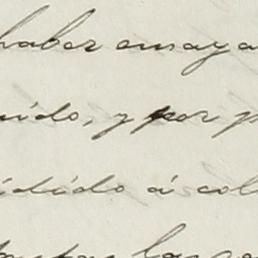 haber ensaya
nido, y por p
idido á col